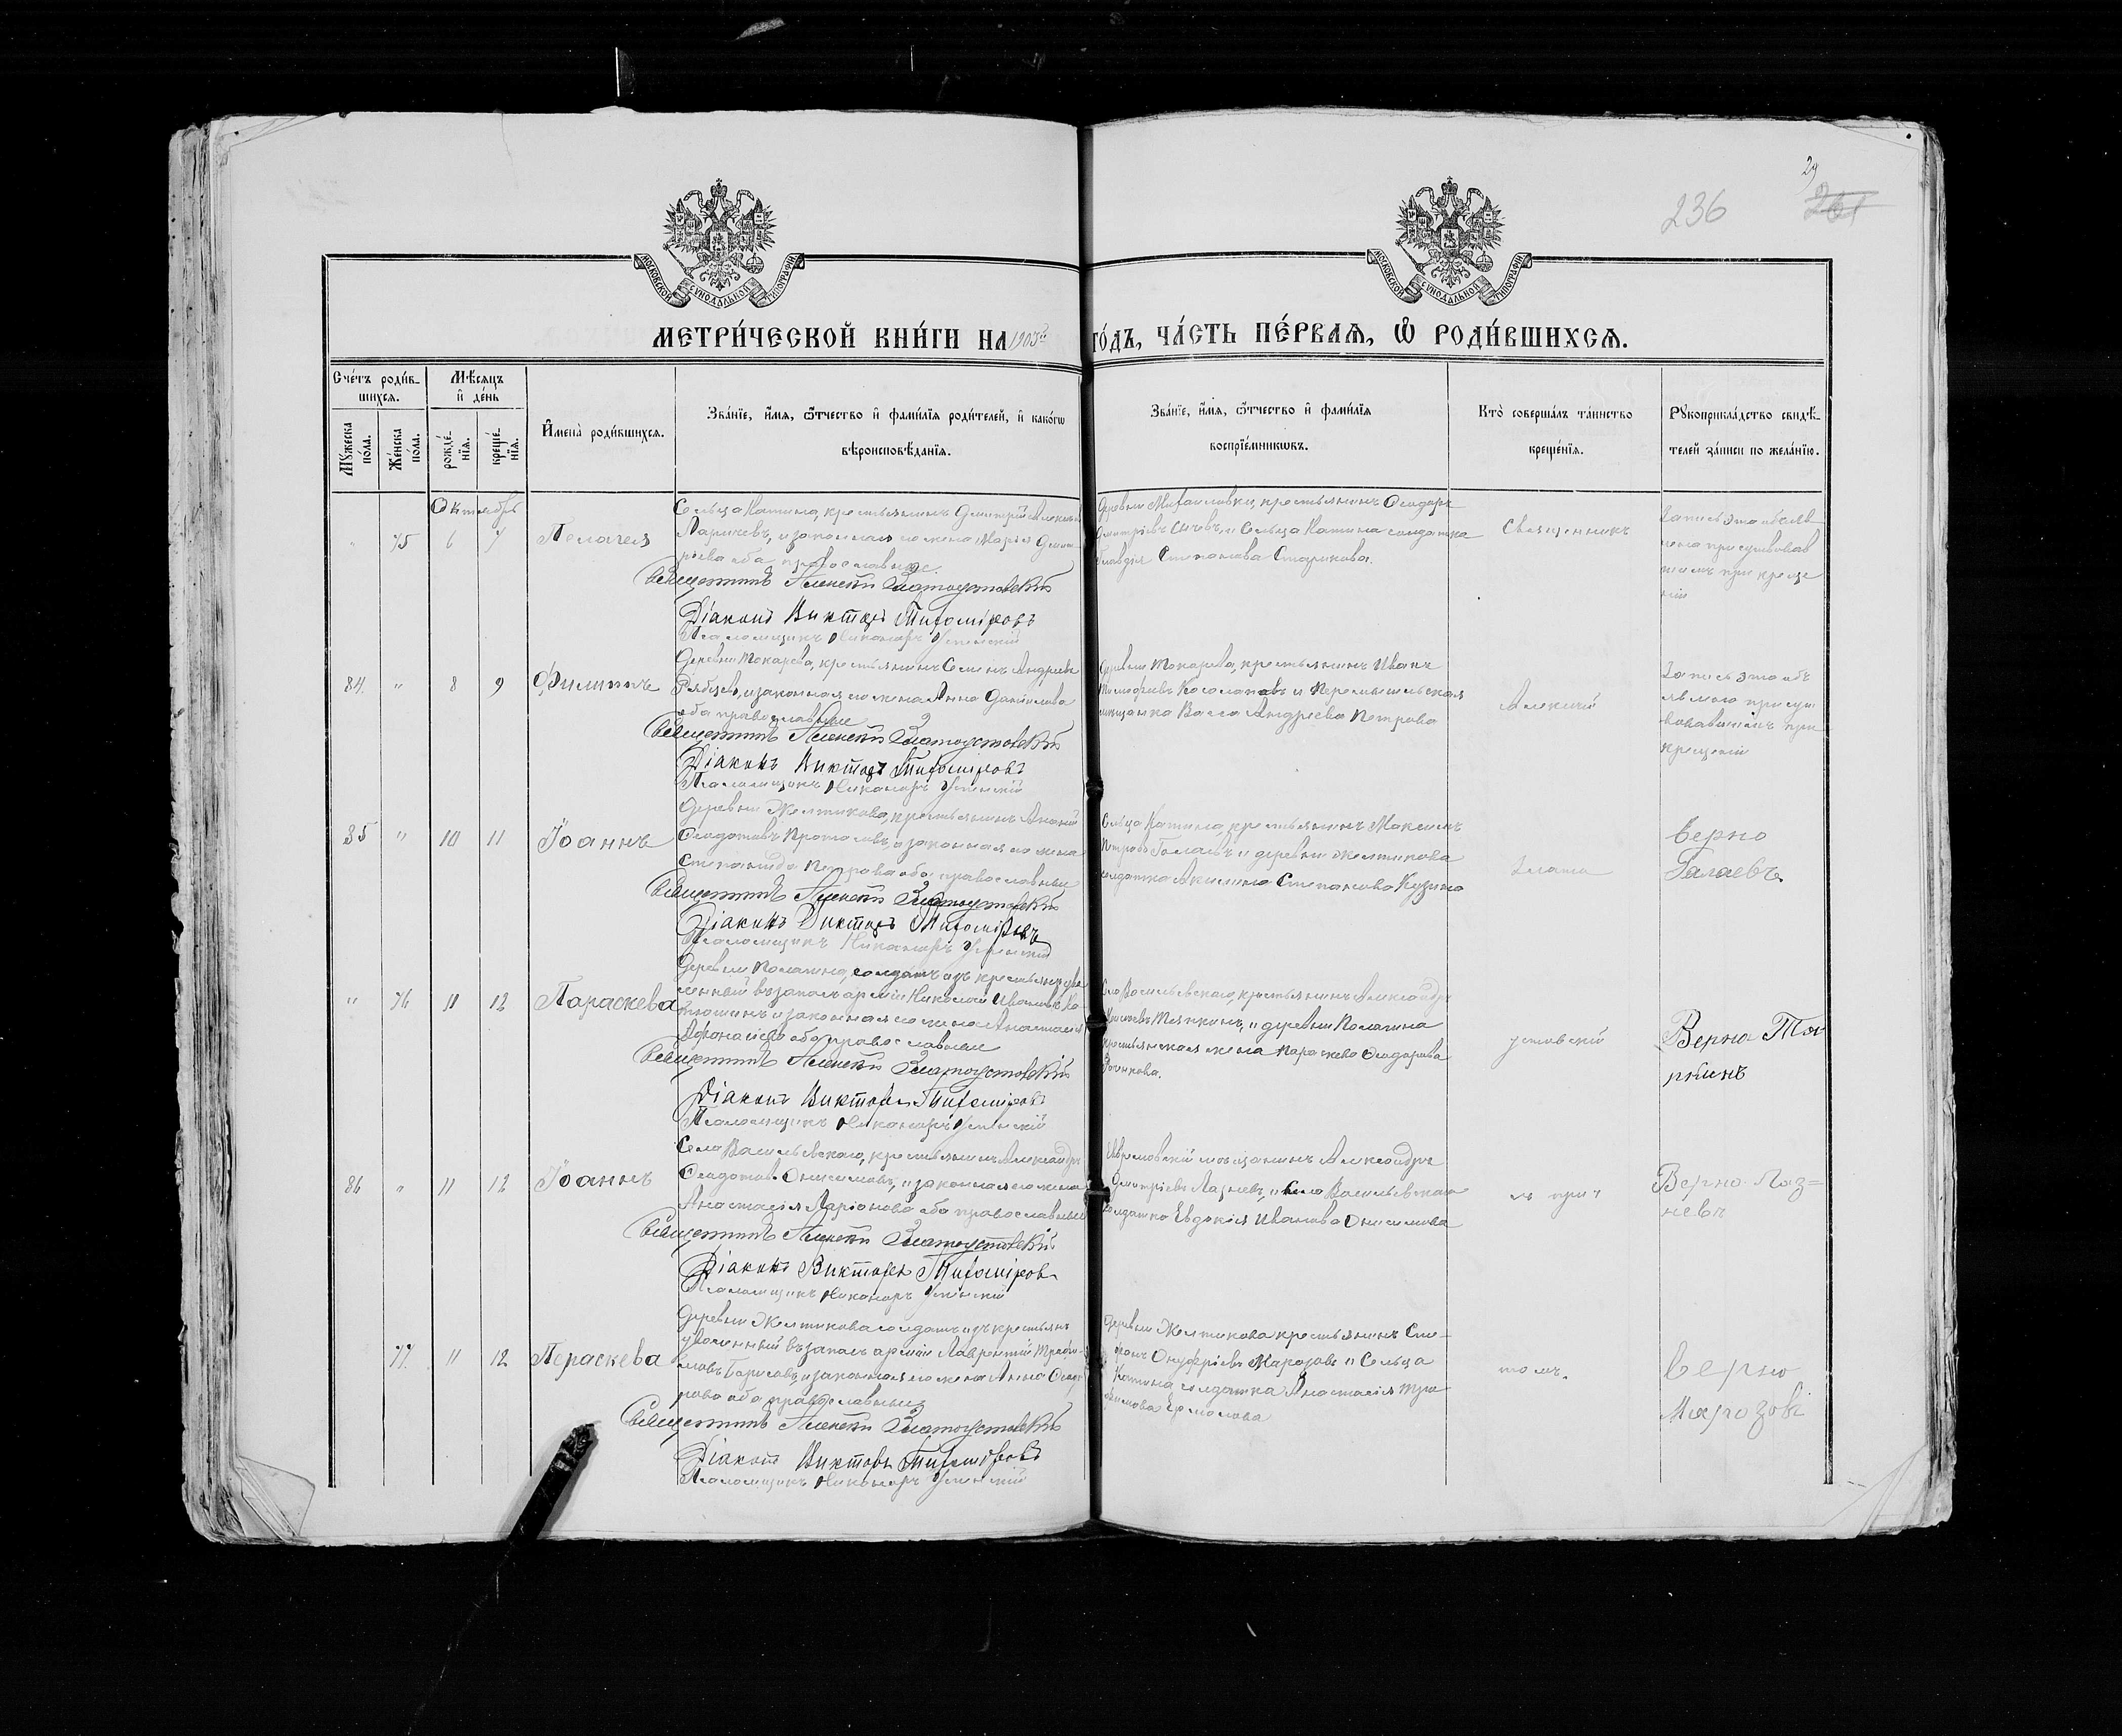 29
236
261
МОСКОВСКОЙ СѴНОДАЛЬНОЙ ТИПОГРАФІИ
МОСКОВСКОЙ СѴНОДАЛЬНОЙ ТИПОГРАФІИ
МЕТРИ́ЧЕСКОЙ КНИ́ГИ НА 1903й ГО́ДЪ, ЧА́СТЬ ПЕ́РВАѦ, Ѡ҆ РОДИ́ВШИХСѦ.
Сче́тъ роди́в-
шихсѧ.
Мѣ́сѧцъ
и҆ де́нь
Мꙋ́жеска по́ла.
Же́нска по́ла.
рожде́-
нїѧ.
креще́-
нїѧ.
И҆мена̀ роди́вшихсѧ.
Зва́нїе, и҆́мѧ, ѻ҆́тчество и҆ фами́лїѧ роди́телей, и҆ како́гѡ
вѣроисповѣ́данїѧ.
Зва́нїе, и҆́мѧ, ѻ҆́тчество и҆ фами́лїѧ
воспрїе́мникѡвъ.
Кто̀ соверша́лъ та́инство
креще́нїѧ.
Рꙋкоприкла́дство свидѣ́-
телей за́писи по жела́нїю.
Октябрь
" 75 6 7 Пелагея
Сельца Катина, крестьянинъ Дмитрій Алексѣевъ
Ларичевъ, и законная его жена Марія Дмит-
ріева оба православные.
Священникъ Алексѣй Златоустовскій
Діаконъ Викторъ Тихоміровъ
Псаломщикъ Никаноръ Успенскій
Деревни Михайловки, крестьянинъ Ѳеодоръ
Дмитріевъ Сычевъ, и Сельца Катина солдатка
Клавдія Степанова Старикова.
Священникъ
Запись эта объяв
лена присутствовав
шимъ при креще
ніи
84. " 8 9 Филиппъ
Деревни Токарева, крестьянинъ Семенъ Андреевъ
Рябцевъ, и законная его жена Анна Даніилова
оба православные
Священникъ Алексѣй Златоустовскій
Діаконъ Викторъ Тихоміровъ
Псаломщикъ Никаноръ Успенскій
Деревни Токарева, крестьянинъ Иванъ
Тимофѣевъ Косолаповъ и Перемышльская
мѣщанка Васса Андреева Петрова
Алексій
Запись эта объ
крещеніи
85 " 10 11 Іоаннъ
Деревни Желтикова, крестьянинъ
Ѳеодотовъ и законная его жена
Степанида Петрова оба православные
Священникъ Алексѣй Златоустовскій
Діаконъ Викторъ Тихоміровъ
Псаломщикъ Никаноръ Успенскій
Сельца Катина, крестьянинъ Максимъ
Петровъ Галаевъ и деревни Желтикова
солдатка Акилина Степанова Кузина
Злато
Верно
Галаевъ
" 76 11 12 Параскева
Деревни Калагина, солдатъ изъ крестьянъ уво
ленный въ запасъ арміи Николай Ивановъ
и законная его жена Анастасія
Афонасьева оба православные
Священникъ Алексѣй Златоустовскій
Діаконъ Викторъ Тихоміровъ
Псаломщикъ Никаноръ Успенскій
Села Васильевскаго, крестьянинъ Александръ
и деревни Калагина
крестьянская жена Параскева Ѳеодорова
устовскій
Верно
86 " 11 12 Іоаннъ
Села Васильевскаго, крестьянинъ Александръ
Ѳеодотовъ Онисимовъ, и законная его жена
Анастасія Ларіонова оба православные
Священникъ Алексѣй Златоустовскій
Діаконъ Викторъ Тихоміровъ
Псаломщикъ Никаноръ Успенскій
мѣщанинъ Александръ
Дмитріевъ Лазневъ, и Села Васильевскаго
солдатка Евдокія Иванова Онисимова
съ прич
Верно Лаз=
невъ
77 11 12 Пераскева
Деревни Желтикова солдатъ изъ крестьянъ
уволенный въ запасъ арміи Лаврентій Трофи-
мовъ Борисовъ, и законная его жена Анна Ѳеодо
рова оба православные
Священникъ Алексѣй Златоустовскій
Діаконъ Викторъ Тихоміровъ
Псаломщикъ Никаноръ Успенскій
Деревни Желтикова крестьянинъ Сте-
фанъ Онуфріевъ Марозовъ и Сельца
Катина солдатка Анастасія Тро
фимова Ермолова
томъ.
Верно
Марозовъ